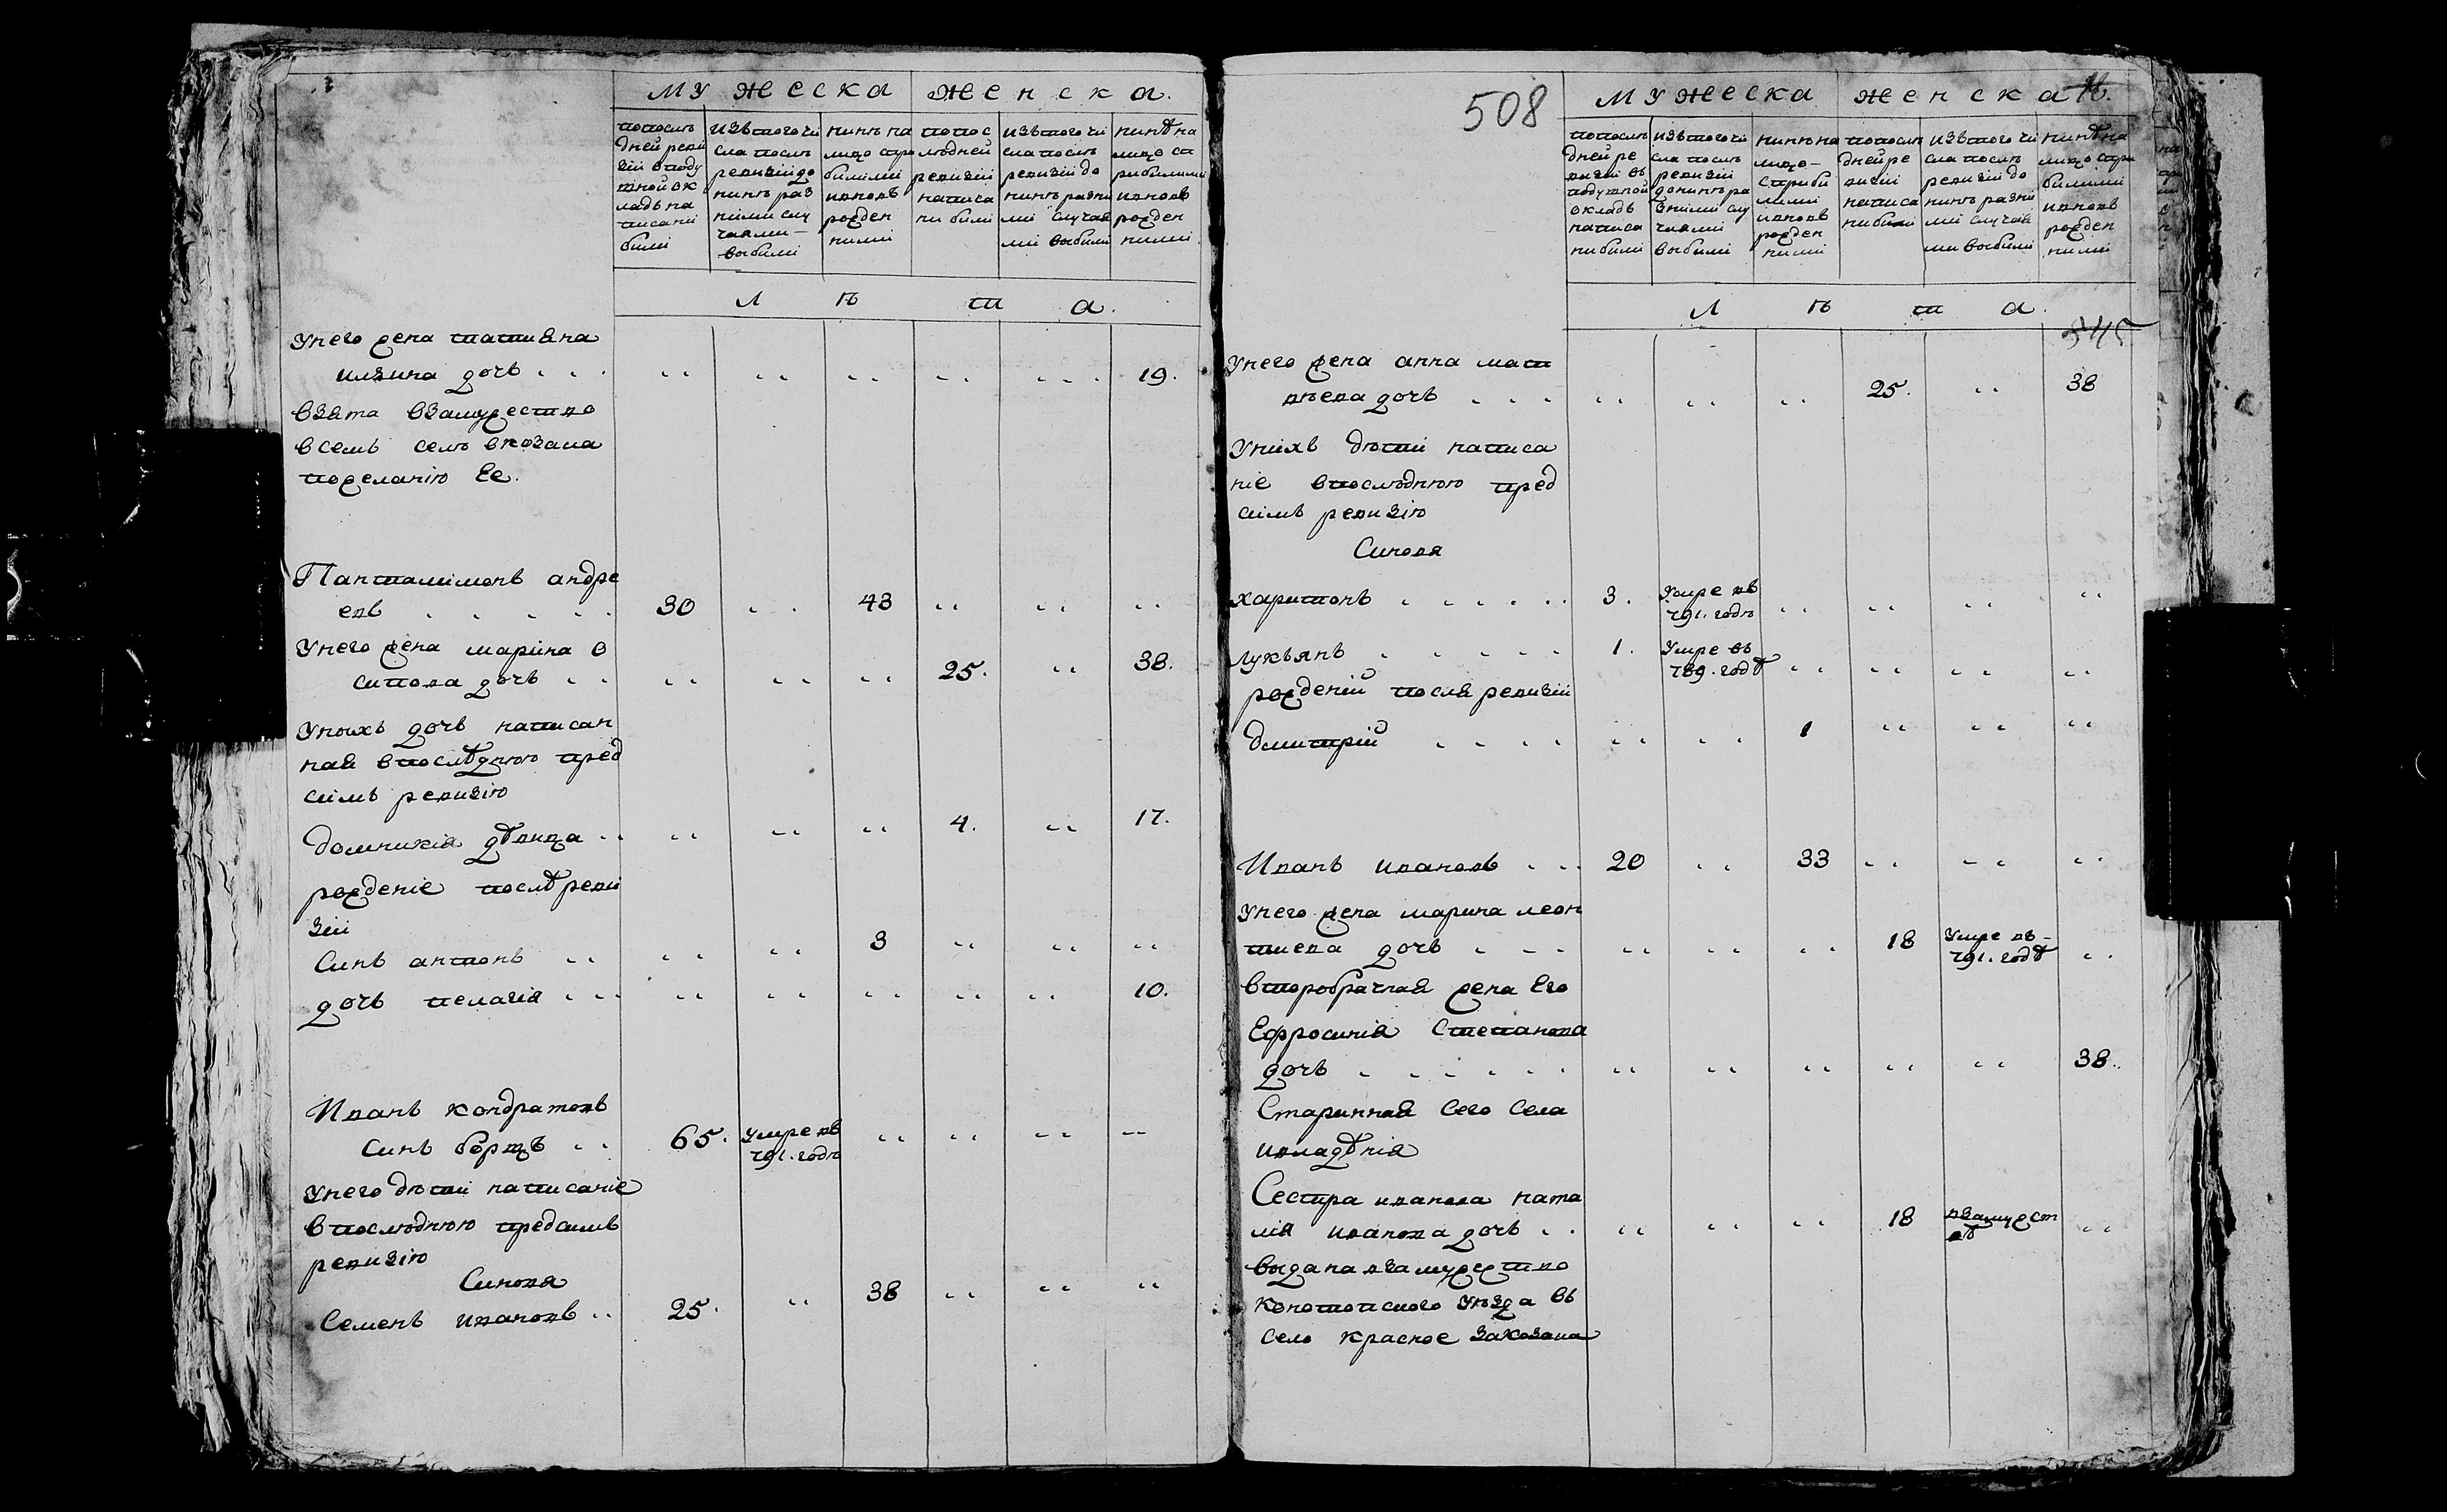 мужеска женска.
попослѣ
дней реви
зіи вподу
шной ок
ладъ на
писани
были
изътого чи
сла послѣ
ревизіи до
нинѣ раз
ними слу
чаями
выбыли
нинѣ на
лицо при
былими
ивновь
рожден
ними
попос
лѣдней
ревизіи
написа
ни были
изътого чи
сла послѣ
ревизіи до
нинѣ разни
ми случая
ми выбыли
нинѣ на
лицо сп
рибылими
ивновь
рожден
ними
лѣта.
Унего жена татияна
илина дочь . . . 19.
взята взамужество
всемъ селѣ
пожеланію Ее.
Панталимонъ андре
евъ . . . . . 30 . . 43
Унего жена марина о
сипова дочь . . 25. . . 38.
Унихъ дочь написан
ная впослѣднюю пред
симъ ревизію
домникія дѣвица . . 4. . . 17.
рожденіе послѣ реви
зіи
Синъ антонъ . . 3
дочь пелагія . . . 10.
Иванъ кондратовъ
Синъ борщъ . . 65. Умре въ
791. годѣ
Унего дѣти написаніе
впослѣднюю предсимъ
ревизію
Синовя
Семенъ ивановъ . . 25. . . 38
508
мужеска женска
попослѣ
дней ре
визіи въ
подушной
окладъ
написа
ни были
изътого чи
сла послѣ
ревизіи
донинѣ ра
зними слу
чаями
выбыли
нинѣ на
лицо
с приби
лими
ивновь
рожден
ними
попослѣ
дней ре
визіи
написа
ни были
изътого чи
сла послѣ
ревизіи до
нинѣ разни
ми случая
ми выбыли
нинѣ на
лицо спри
билими
ивновь
рожден
ними
лѣта.
345
Унего жена анна мат
вѣева дочь . . . 25. . . 38
Унихъ дѣти написа
ніе впослѣднюю пред
симъ ревизію
Синовя
харитонъ . . . . . . 3. Умре въ
791. годѣ
лукъянъ . . . . . 1. Умре въ
789. годѣ
рожденій посля ревизіи
дмитрій . . . . 1
Иванъ ивановъ . . . 20 . . 33
Унего жена марина леон
тиева дочь . . . 18 Умре въ
791. годѣ
второбрачная жена Его
Ефросинія Степанова
дочь . . . . . . 38.
Старинная Сего Села
ивладѣнія
Сестра иванова ната
лія иванова дочь . . 18 взамужст
вѣ
выдана взамужество
конотопского уѣзда въ
село красное